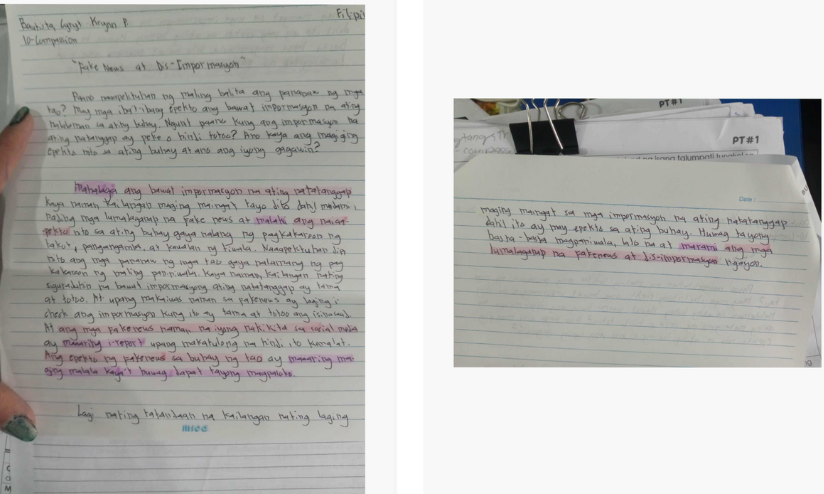 Filipi
Bautista
10-Compassion
"Fake News at Dis-Impormasyon"
Paano naaapektuhan ng maling balita ang pananaw ng mga
tao? May mga iba't ibang epekto ang bawat impormasyon na ating
nalalaman sa ating buhay. Ngunit paano kung ang impormasyon na
ating natanggap ay peke o hindi totoo? Ano kaya ang magiging
epekto nito sa ating buhay at ano ang iyong gagawin?
Mahalaga ang bawat impormasyon na ating natatanggap
kaya naman, kailangan maging maingat tayo dito dahil
maling mga lumalaganap na fake news at malaki ang
epekto nito sa ating buhay gaya nalang ng pagkakaroon ng
takot, pangangamba, at kawalan ng tiwala. Naaapektuhan din
nito ang mga pananaw ng mga tao gaya nalamang ng pag
kakaroon ng maling paniniwala. Kaya naman, kailangan nating
siguraduhin na bawat impormasyong ating natatanggap ay tama
at totoo. At upang makaiwas naman sa fakenews ay laging i-
check ang impormasyon kung ito ay tama at totoo ang
At ang mga fakenews naman na iyong nakikita sa social media
ay maaaring i-report upang makatulong na hindi ito kumalat.
Ang epekto ng fakenews sa buhay ng tao ay maaaring ma
ging malala kaya't huwag dapat tayong magpaloko.
Lagi nating tatandaan na kailangan nating laging
mico
PT#1
PT#1
Date:
maging maingat sa mga impormasyon na ating natatanggap
dahil ito ay may epekto sa ating buhay. Huwag tayong
basta-basta magpaniwala, lalo na at marami ang mga
lumalaganap na fakenews at dis-impormasyon ngayon.